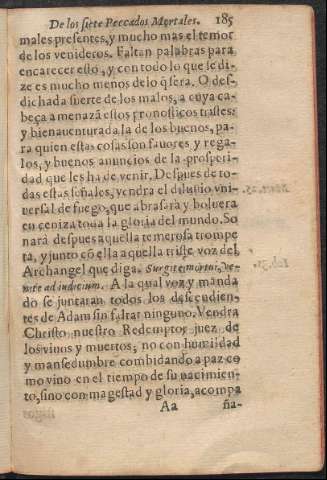 De los siete Peccados Mortales. 185
males presentes, y mucho mas el temor
de los venideros. Faltan palabras para
encarecer esto, y con todo lo que se di-
ze es mucho menos de lo q̃ sera. O des-
dichada suerte de los malos, a cuya ca-
beça amenazã estos pronosticos tristes:
y bienauenturada la de los buenos, pa-
ra quien estas cosas son fauores, y rega-
los, y buenos anuncios de la prosperi-
dad que les ha de venir. Despues de to-
das estas señales, vendra el diluuio vni-
uersal de fuego, que abrasara y boluera
en ceniza toda la gloria del mundo. So
nara despues aquella temerosa trompe
ta, y junto cõ ella aquella triste voz del
Archangel que diga. Surgite mortui, ve-
nite ad iudicium. A la qual voz y manda
do se juntaran todos los descendien-
tes de Adam sin faltar ninguno. Vendra
Christo nuestro Redemptor juez de
los viuos y muertos, no con humildad
y mansedumbre combidando a paz co
mo vino en el tiempo de su nacimien-
to, sino con magestad y gloria, acompa
Aa ña-